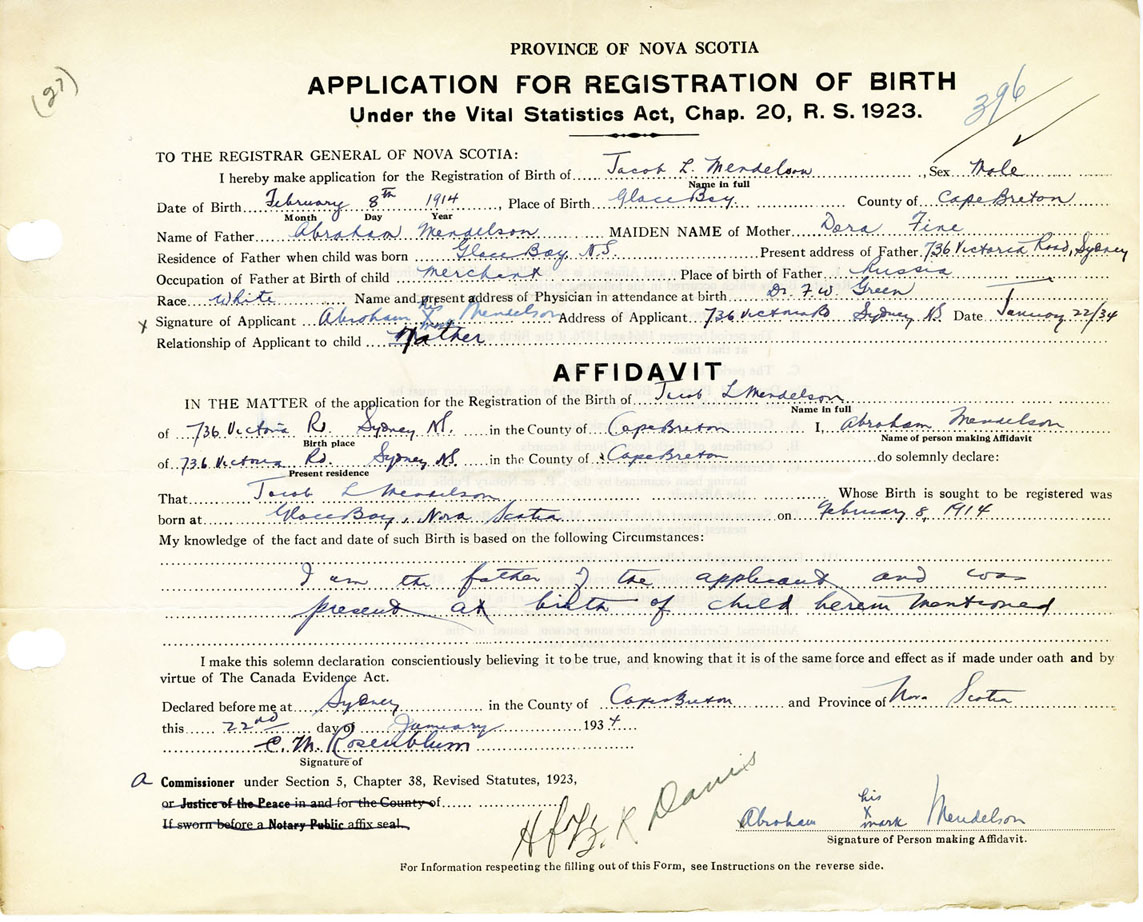 PROVINCE OF NOVA SCOTIA
(27)
APPLICATION FOR REGISTRATION OF BIRTH
396
Under the Vital Statistics Act, Chap. 20, R. S. 1923.
TO THE REGISTRAR GENERAL OF NOVA SCOTIA:
I hereby make application for the Registration of Birth of Jacob L. Mendelson, Sex Male
Name in full
Date of Birth February 8th 1914, Place of Birth Glace Bay County of Cape Breton
Month Day Year
Name of Father Abraham Mendelson MAIDEN NAME of Mother Dora Fine
Residence of Father when child was born Glace Bay, N.S. Present address of Father 736 Victoria Road, Sydney
Occupation of Father at Birth of child merchant Place of birth of Father Russia
Race White Name and present address of Physician in attendance at birth Dr. F. W. Green
his
x Signature of Applicant Abraham X Mendelson Address of Applicant 736 Victoria Rd Sydney NS Date January 22/34
mark
Relationship of Applicant to child Father
AFFIDAVIT
IN THE MATTER of the application for the Registration of the Birth of Jacob L Mendelson
Name in full
of 736 Victoria Rd. Sydney NS. in the County of Cape Breton I, Abraham Mendelson
Birth place Name of person making Affidavit
of 736 Victoria Rd. Sydney NS. in the County of Cape Breton do solemnly declare:
Present residence
That Jacob L Mendelson Whose Birth is sought to be registered was
born at Glace Bay, Nova Scotia on February 8, 1914
My knowledge of the fact and date of such Birth is based on the following Circumstances:
I am the father of the applicant and was
present at birth of child herein mentioned
I make this solemn declaration conscientiously believing it to be true, and knowing that it is of the same force and effect as if made under oath and by
virtue of The Canada Evidence Act.
Declared before me at Sydney in the County of Cape Breton and Province of Nova Scotia
this 22nd day of January 1934
C. M. Rosenblum
Signature of
a Commissioner under Section 5, Chapter 38, Revised Statutes, 1923,
or Justice of the Peace in and for the County of
If sworn before a Notary Public affix seal.
K Davis
his
Abraham X mark Mendelson
Signature of Person making Affidavit.
For Information respecting the filling out of this Form, see Instructions on the reverse side.